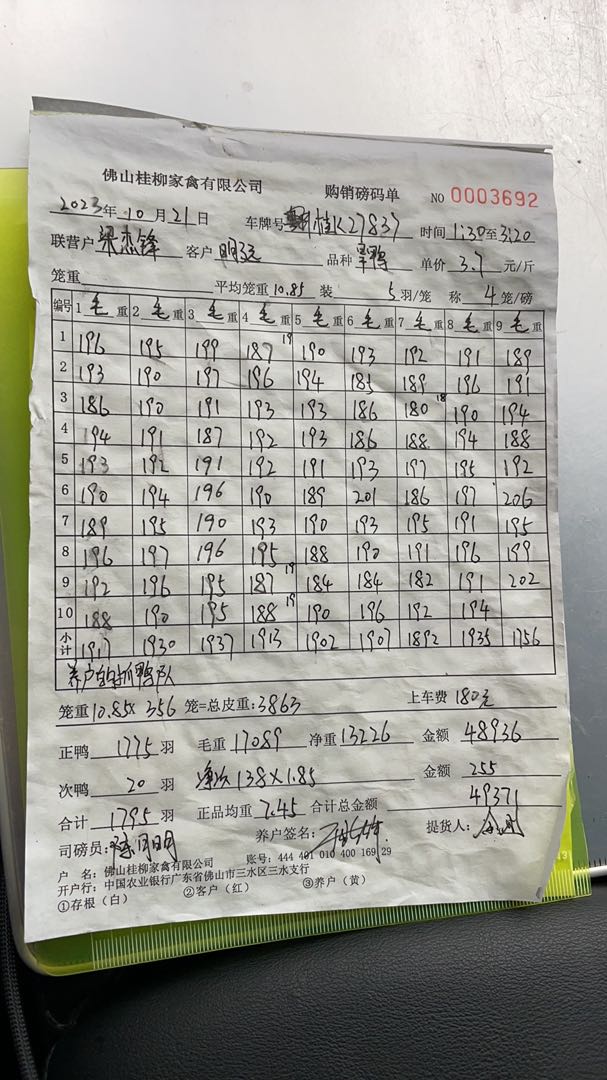 佛山桂柳家禽有限公司 购销磅码单 NO 0003692
2023年10月21日 车牌号 桂K27837 时间 1:30至3:20
联营户 梁杰锋 客户 明记 品种 单价 3.7 元/斤
笼重 平均笼重 10.85 装 5 羽/笼 称 4 笼/磅
编号 1 毛重 2 毛重 3 毛重 4 毛重 5 毛重 6 毛重 7 毛重 8 毛重 9 毛重
1 196 195 199 187 19 190 193 192 191 189
2 193 190 197 196 194 185 189 196 191
3 186 190 191 193 193 186 180 18 190 194
4 194 191 187 192 193 186 188 194 188
5 193 192 191 192 191 193 197 195 192
6 190 194 196 190 189 201 186 197 206
7 189 195 190 193 190 193 195 191 195
8 196 197 196 195 188 190 191 196 199
9 192 196 195 187 19 184 184 182 191 202
10 188 190 195 188 19 190 196 192 194
小计 1917 1930 1937 1913 1902 1907 1892 1935 1756
养户自抓鸭队
笼重 10.85× 356 笼=总皮重: 3863 上车费 180元
正鸭 1775 羽 毛重 17089 净重 13226 金额 48936
次鸭 20 羽 138×1.85 金额 255
合计 1795 羽 正品均重 7.45 合计总金额 49371
司磅员: 养户签名: 提货人:
户 名: 佛山桂柳家禽有限公司 账号: 444 401 010 400 169 29
开户行: 中国农业银行广东省佛山市三水区三水支行
①存根（白） ②客户（红） ③养户（黄）